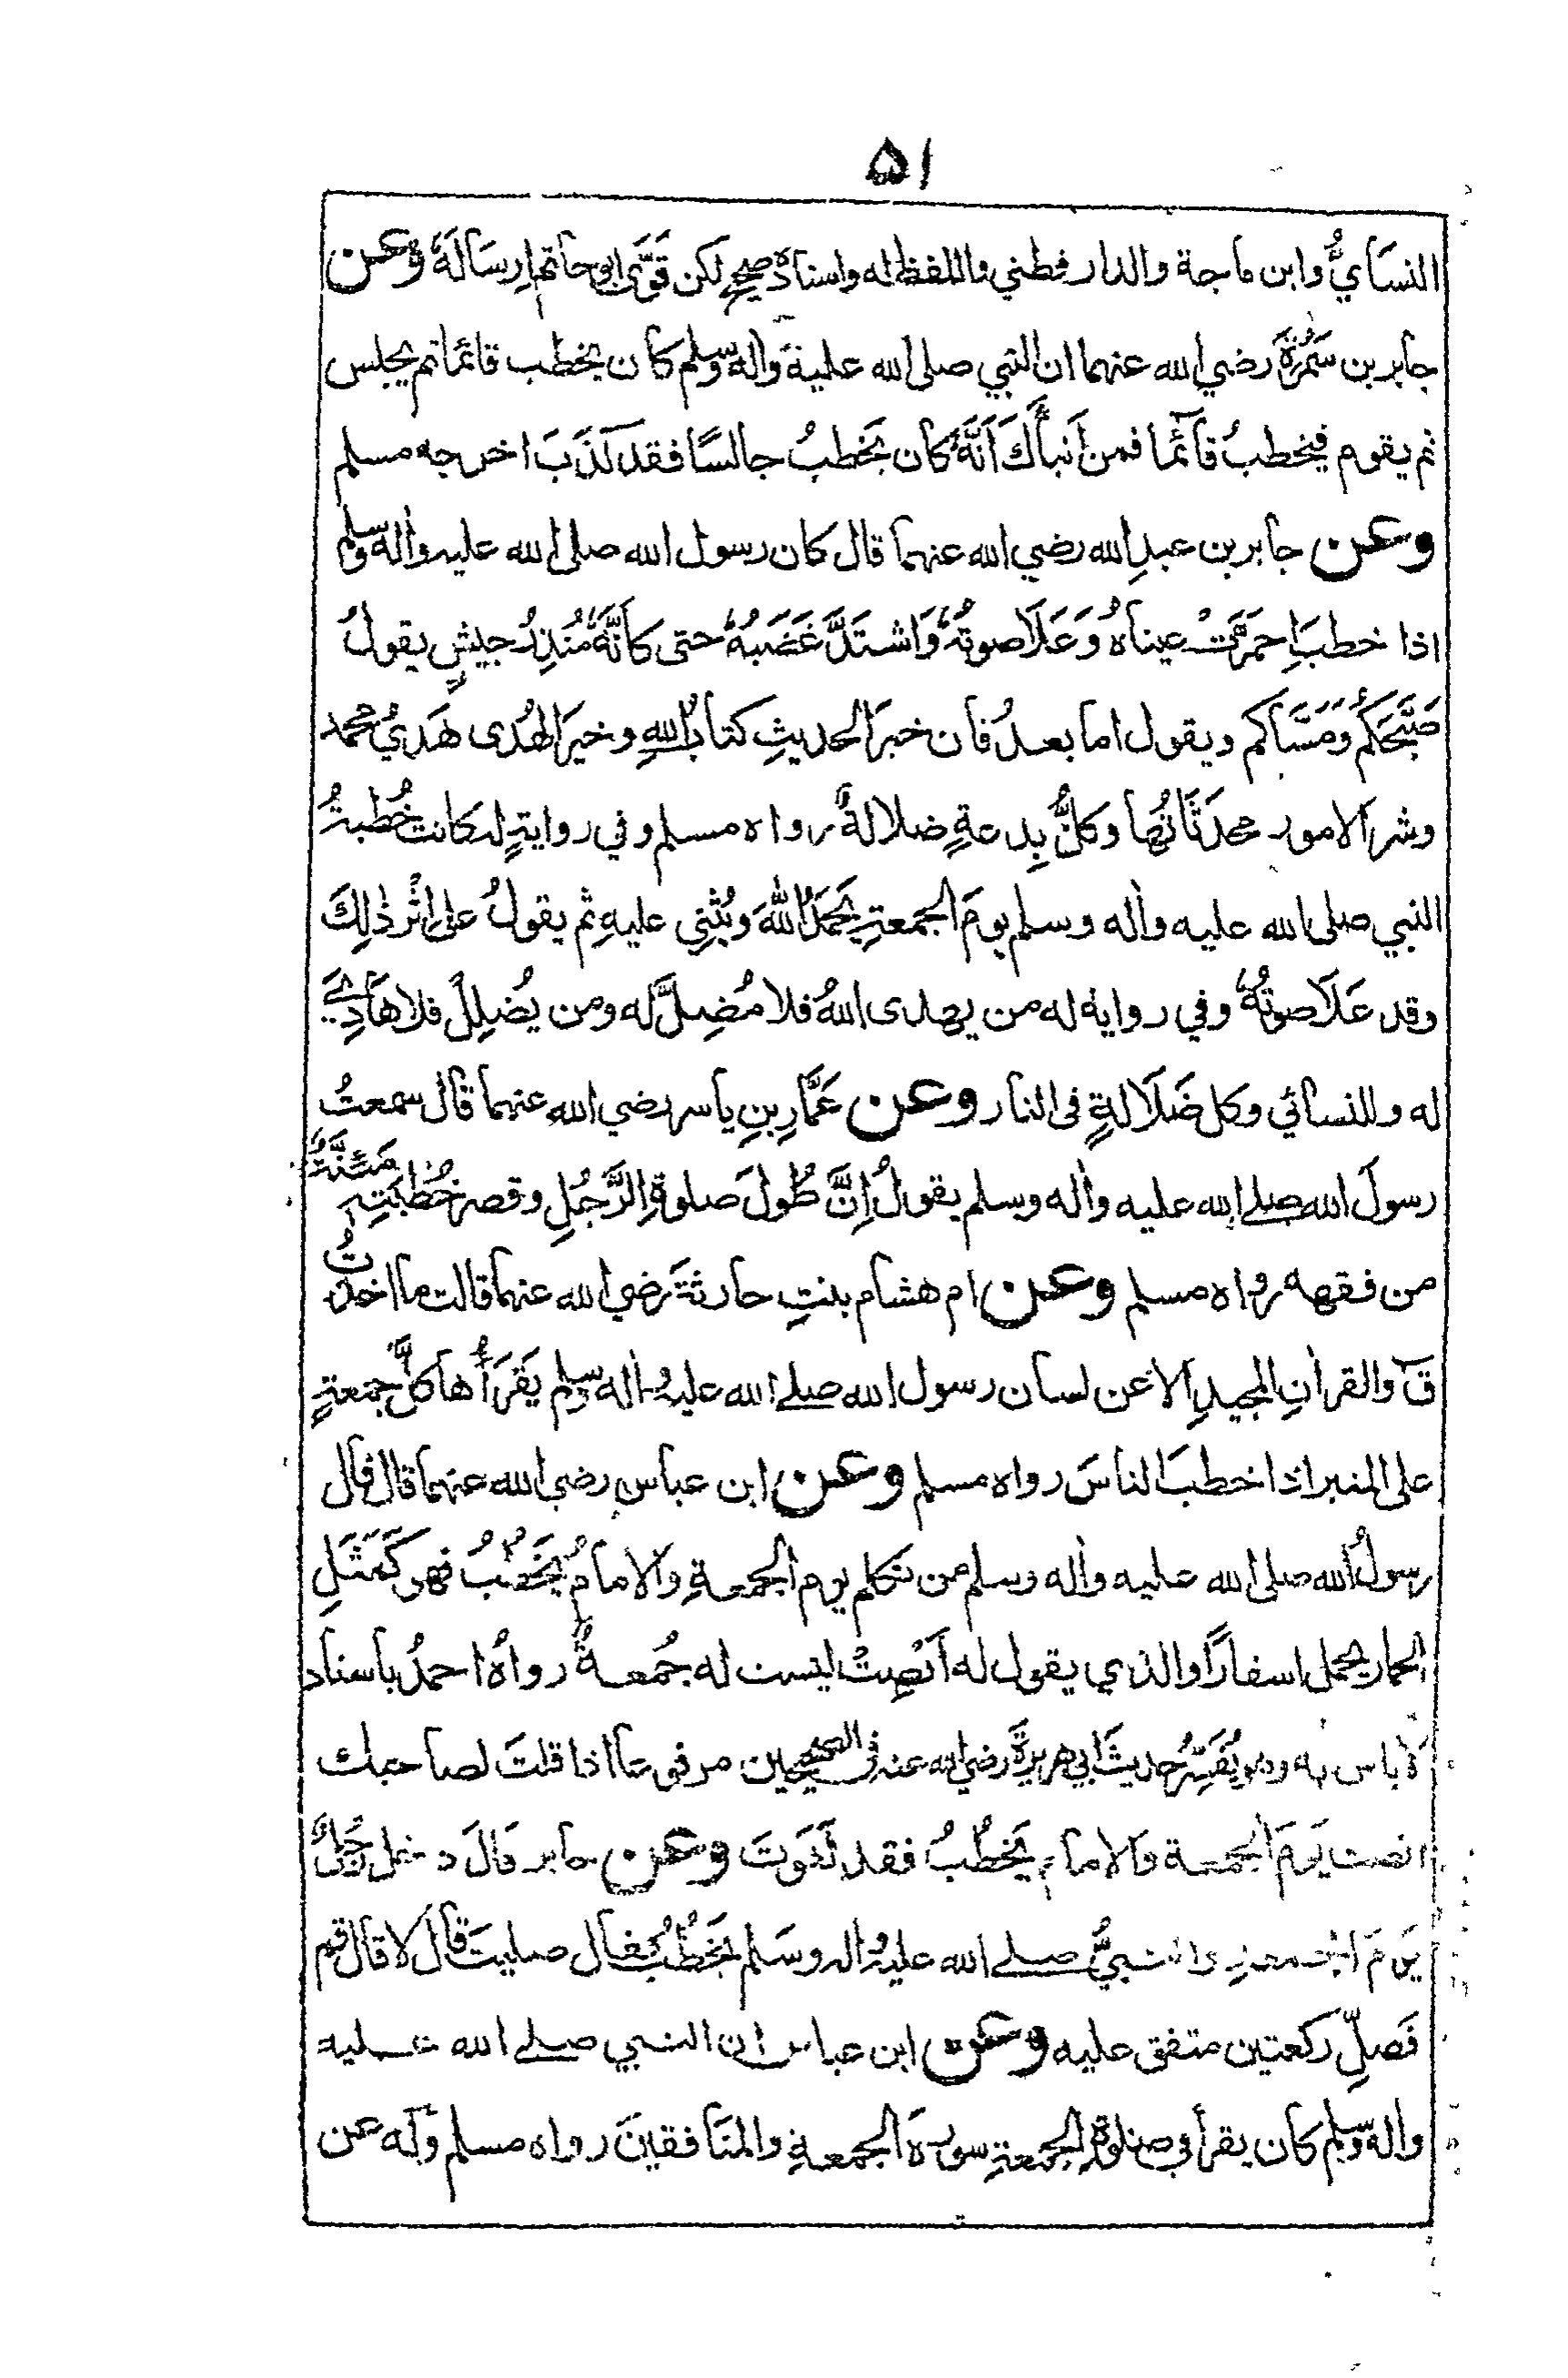 ۵۱
النسَايُّ وابن ماجة والدارقطني واللفظ له واسنادهُ صحيح لكن قَوَّى ابو حاتم اِرسَالَهٗ وعن
جابر بن سَمُرَةَ رضي الله عنهما ان النبي صلى الله عليه وَاٰله وسلم كان يخطب قائما ثم يجلس
ثم يقوم فيخطبُ قآئما فمن اَنبأَكَ اَنَّهٗ كان يَخطبُ جالسًا فقد كَذَبَ اخرجه مسلم
وعن جابر بن عبدِ الله رضي الله عنهما قال كان رسول الله صلى الله عليه واٰله وسلم
اذا خطبَ احمَرَّتْ عيناهُ وَعَلَا صوتُهٗ وَاشتَدَّ غَضَبُهٗ حتى كاَنَّهٗ مُنذِرُ جيشٍ يقولُ
صَبَّحَكُم وَمَسَّاكم ويقول اما بعدُ فان خيرَ الحديثِ كتابُ اللهِ وخيرَ الهُدى هَديُ محمد
وشر الامور محدَثَاتُها وكلُّ بِدعةٍ ضلالةٌ رواه مسلم وفي روايةٍ له كانت خُطبةُ
النبي صلى الله عليه واٰله وسلم يومَ الجمعةِ يَحمَدُ اللّٰهَ ويُثنِي عليهِ ثم يقولُ على اِثْرِ ذٰلِكَ
وقد عَلَا صوتُهٗ وفي روايةٍ له من يهدى اللهُ فلا مُضِلَّ له ومن يُضلِلْ فلا هَادِيَ
له وللنسائي وكل ضَلَالةٍ فى النار وعن عَمَّارِ بنِ ياسر رضي الله عنهما قال سمعتُ
رسولَ الله صلى الله عليه واٰله وسلم يقولُ اِنَّ طُولَ صَلوةِ الرَّجُلِ وقصر خُطْبَتِهٖ مَئِنَّةٌ
من فقهه رواه مسلم وعن ام هشام بنتِ حارثةَ رضي الله عنهما قالت ما اخذتُ
قٓ والقراٰنِ المجيدِ الا عن لسان رسول الله صلى الله عليه واٰله وسلم يَقرَأُها كلَّ جمعةٍ
على المنبر اذا خطبَ الناسَ رواه مسلم وعن ابن عباس رضي الله عنهما قال قال
رسولُ الله صلى الله عليه واٰله وسلم من تكلم يوم الجمعةِ والامامُ يَخطُبُ فهو كَمَثَلِ
الحمار يحمل اسفارًا والذي يقول له اَنْصِتْ ليست له جُمعةٌ رواهُ احمدُ باسناد
لا باس به وهو يُفَسِّرُ حديثَ ابي هريرةَ رضي الله عنه فى الصحيحين مرفوعًا اذا قلتَ لصاحبك
انصت يَومَ الجمعة والامام يَخطُبُ فقد لَغَوتَ وعن جابر قالَ دخل رَجُلٌ
يَومَ الجمعةِ والنبيُّ صلى الله عليه واٰله وسَلم يَخطُبُ فقال صليتَ قالَ لا قال قم
فَصَلِّ ركعتين متفق عليه وعن ابن عباس ان النبي صلى الله عليه
واٰله وسلم كان يقرأ في صلوةِ الجمعةِ سورةَ الجمعةِ والمنَافقينَ رواه مسلم وله عن